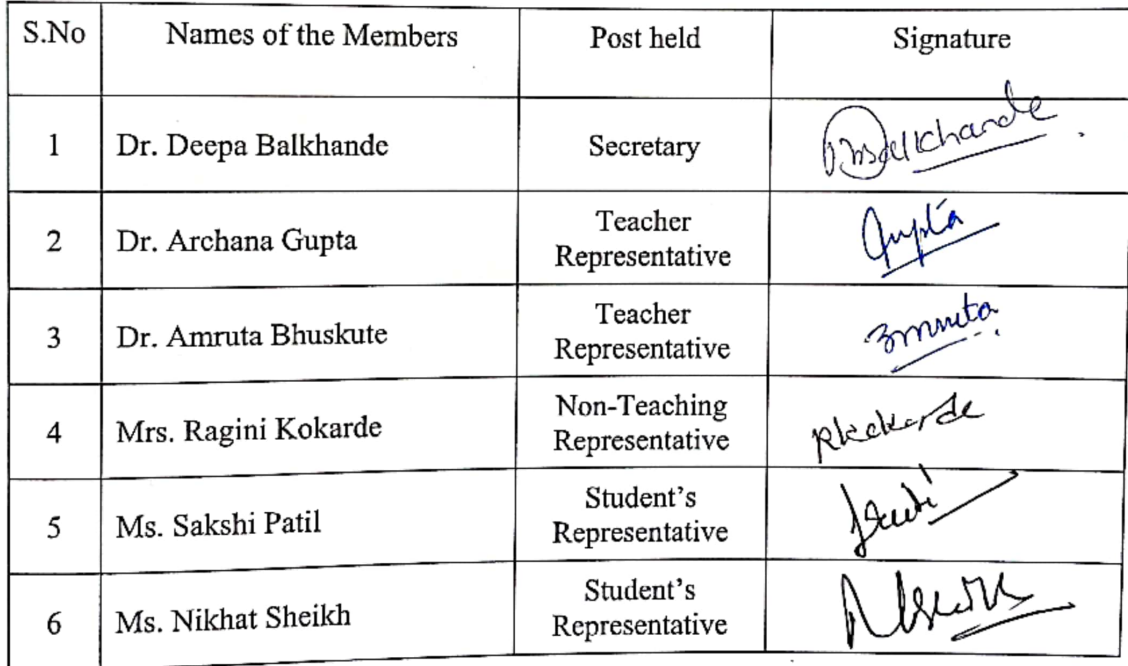 S.No Names of the Members Post held Signature
1 Dr. Deepa Balkhande Secretary
2 Dr. Archana Gupta Teacher Representative Gupta
3 Dr. Amruta Bhuskute Teacher Representative
4 Mrs. Ragini Kokarde Non-Teaching Representative Rkokarde
5 Ms. Sakshi Patil Student's Representative
6 Ms. Nikhat Sheikh Student's Representative